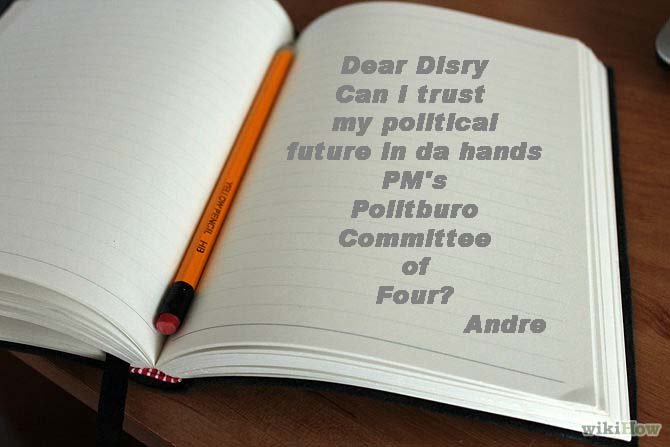 Dear Disry
Can I trust
my political
future in da hands
PM's
Politburo
Committee
of
Four?
Andre
YELLOW PENCIL HB
wikiHow